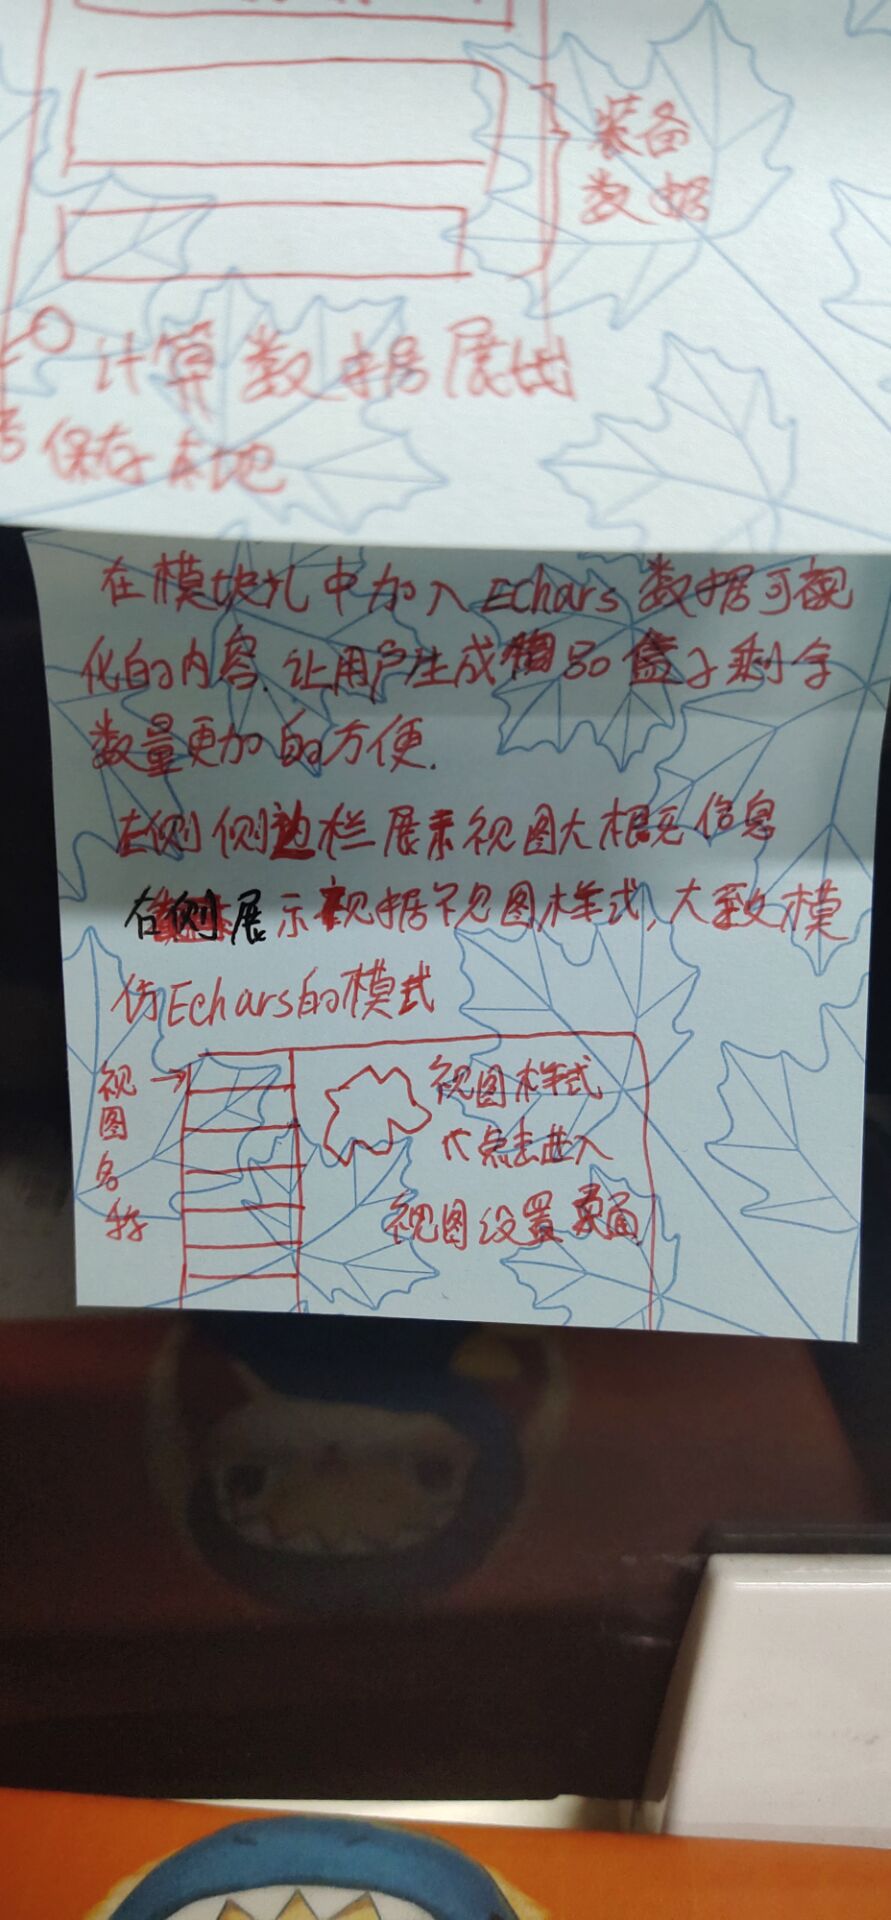 装备
数据
计算数据展出
保存本地
在模块化中加入Echars数据可视
化的内容.让用户生成物品盒子剩余
数量更加的方便.
左侧侧边栏展示视图大概信息
右侧展示数据视图样式,大致模
仿Echars的模式
视图名称
视图样式
点击进入
视图设置页面